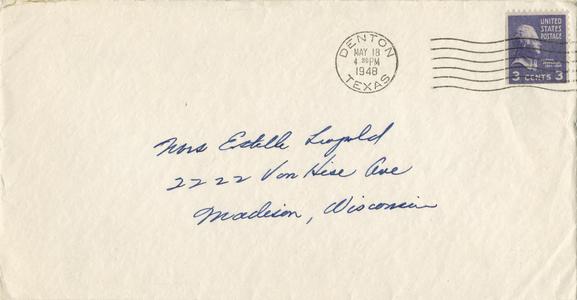 DENTON
MAY 18
4 30 PM
1948
TEXAS
UNITED
STATES
POSTAGE
3 CENTS 3
Mrs Estelle Leopold
2222 Van Hise Ave
Madison, Wisconsin